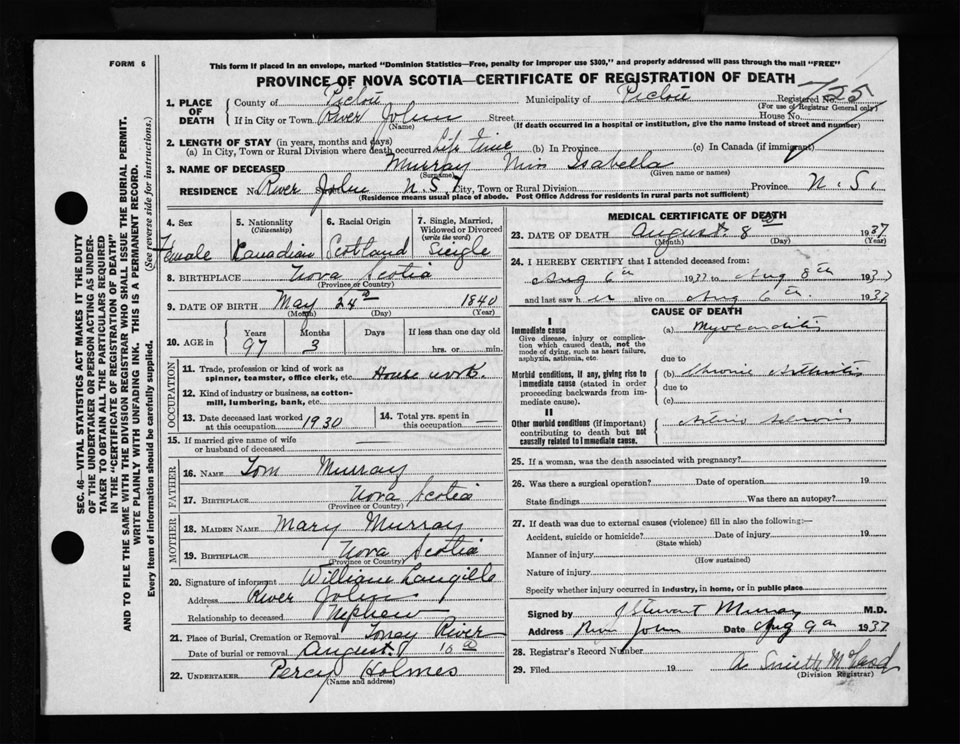 FORM 6
This form if placed in an envelope, marked "Dominion Statistics—Free, penalty for improper use $300," and properly addressed will pass through the mail "FREE"
PROVINCE OF NOVA SCOTIA—CERTIFICATE OF REGISTRATION OF DEATH
SEC. 46—VITAL STATISTICS ACT MAKES IT THE DUTY
OF THE UNDERTAKER OR PERSON ACTING AS UNDER-
TAKER TO OBTAIN ALL THE PARTICULARS REQUIRED
IN THE "CERTIFICATE OF REGISTRATION OF DEATH"
AND TO FILE THE SAME WITH THE DIVISION REGISTRAR WHO SHALL ISSUE THE BURIAL PERMIT.
WRITE PLAINLY WITH UNFADING INK. THIS IS A PERMANENT RECORD.
Every item of information should be carefully supplied. (See reverse side for instructions.)
1. PLACE OF DEATH County of Pictou Municipality of Pictou Registered No. 725
(For use of Registrar General only)
If in City or Town River John Street House No.
(Name) (If death occurred in a hospital or institution, give the name instead of street and number)
2. LENGTH OF STAY (in years, months and days)
(a) In City, Town or Rural Division where death occurred Life Time (b) In Province (c) In Canada (if immigrant)
3. NAME OF DECEASED Murray Miss Isabella
(Surname) (Given name or names)
RESIDENCE No River John N.S. City, Town or Rural Division Province N.S.
(Residence means usual place of abode. Post Office Address for residents in rural parts not sufficient)
4. Sex 5. Nationality 6. Racial Origin 7. Single, Married,
(Citizenship) Widowed or Divorced
(write the word)
Female Canadian Scotland Single
8. BIRTHPLACE Nova Scotia
(Province or Country)
9. DATE OF BIRTH May 24th 1840
(Month) (Day) (Year)
10. AGE in Years Months Days If less than one day old
97 3 hrs. or min.
OCCUPATION
11. Trade, profession or kind of work as
spinner, teamster, office clerk, etc. House work.
12. Kind of industry or business, as cotton-
mill, lumbering, bank, etc.
13. Date deceased last worked
at this occupation 1930
14. Total yrs. spent in
this occupation —
15. If married give name of wife
or husband of deceased
FATHER
16. NAME Tom Murray
17. BIRTHPLACE Nova Scotia
(Province or Country)
MOTHER
18. MAIDEN NAME Mary Murray
19. BIRTHPLACE Nova Scotia
(Province or Country)
20. Signature of informant William Langille
Address River John
Relationship to deceased Nephew
21. Place of Burial, Cremation or Removal Toney River
Date of burial or removal August 10
22. UNDERTAKER Percy Holmes
(Name and address)
MEDICAL CERTIFICATE OF DEATH
23. DATE OF DEATH August 8th 1937
(Month) (Day) (Year)
24. I HEREBY CERTIFY that I attended deceased from:
Aug 6th 1937 to Aug 8th 1937
and last saw her alive on Aug 6th 1937
CAUSE OF DEATH
I
Immediate cause (a) Myocarditis
Give disease, injury or complica-
tion which caused death, not the
mode of dying, such as heart failure,
asphyxia, asthenia, etc.
due to
Morbid conditions, if any, giving rise to
immediate cause (stated in order
proceeding backwards from im-
mediate cause).
(b) Chronic Arthritis
due to
(c)
II
Other morbid conditions (if important)
contributing to death but not
causally related to immediate cause.
25. If a woman, was the death associated with pregnancy?
26. Was there a surgical operation? Date of operation 19
State findings Was there an autopsy?
27. If death was due to external causes (violence) fill in also the following:—
Accident, suicide or homicide? Date of injury 19
(State which)
Manner of injury
(How sustained)
Nature of injury
Specify whether injury occurred in industry, in home, or in public place
Signed by J Stewart Murray M.D.
Address River John Date Aug 9th 1937
28. Registrar's Record Number
29. Filed 19
(Division Registrar)